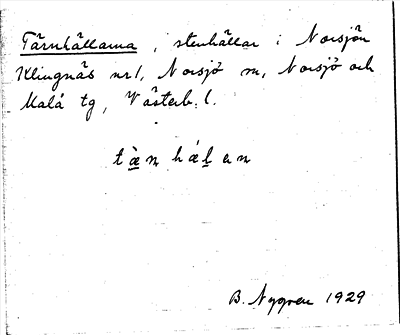 Tärnhällarna, stenhällar i Norsjön
Klingnäs nr 1, Norsjö sn, Norsjö och
Malå tg, Västerb. l.
tæ̀n hálan
B. Nygren 1929